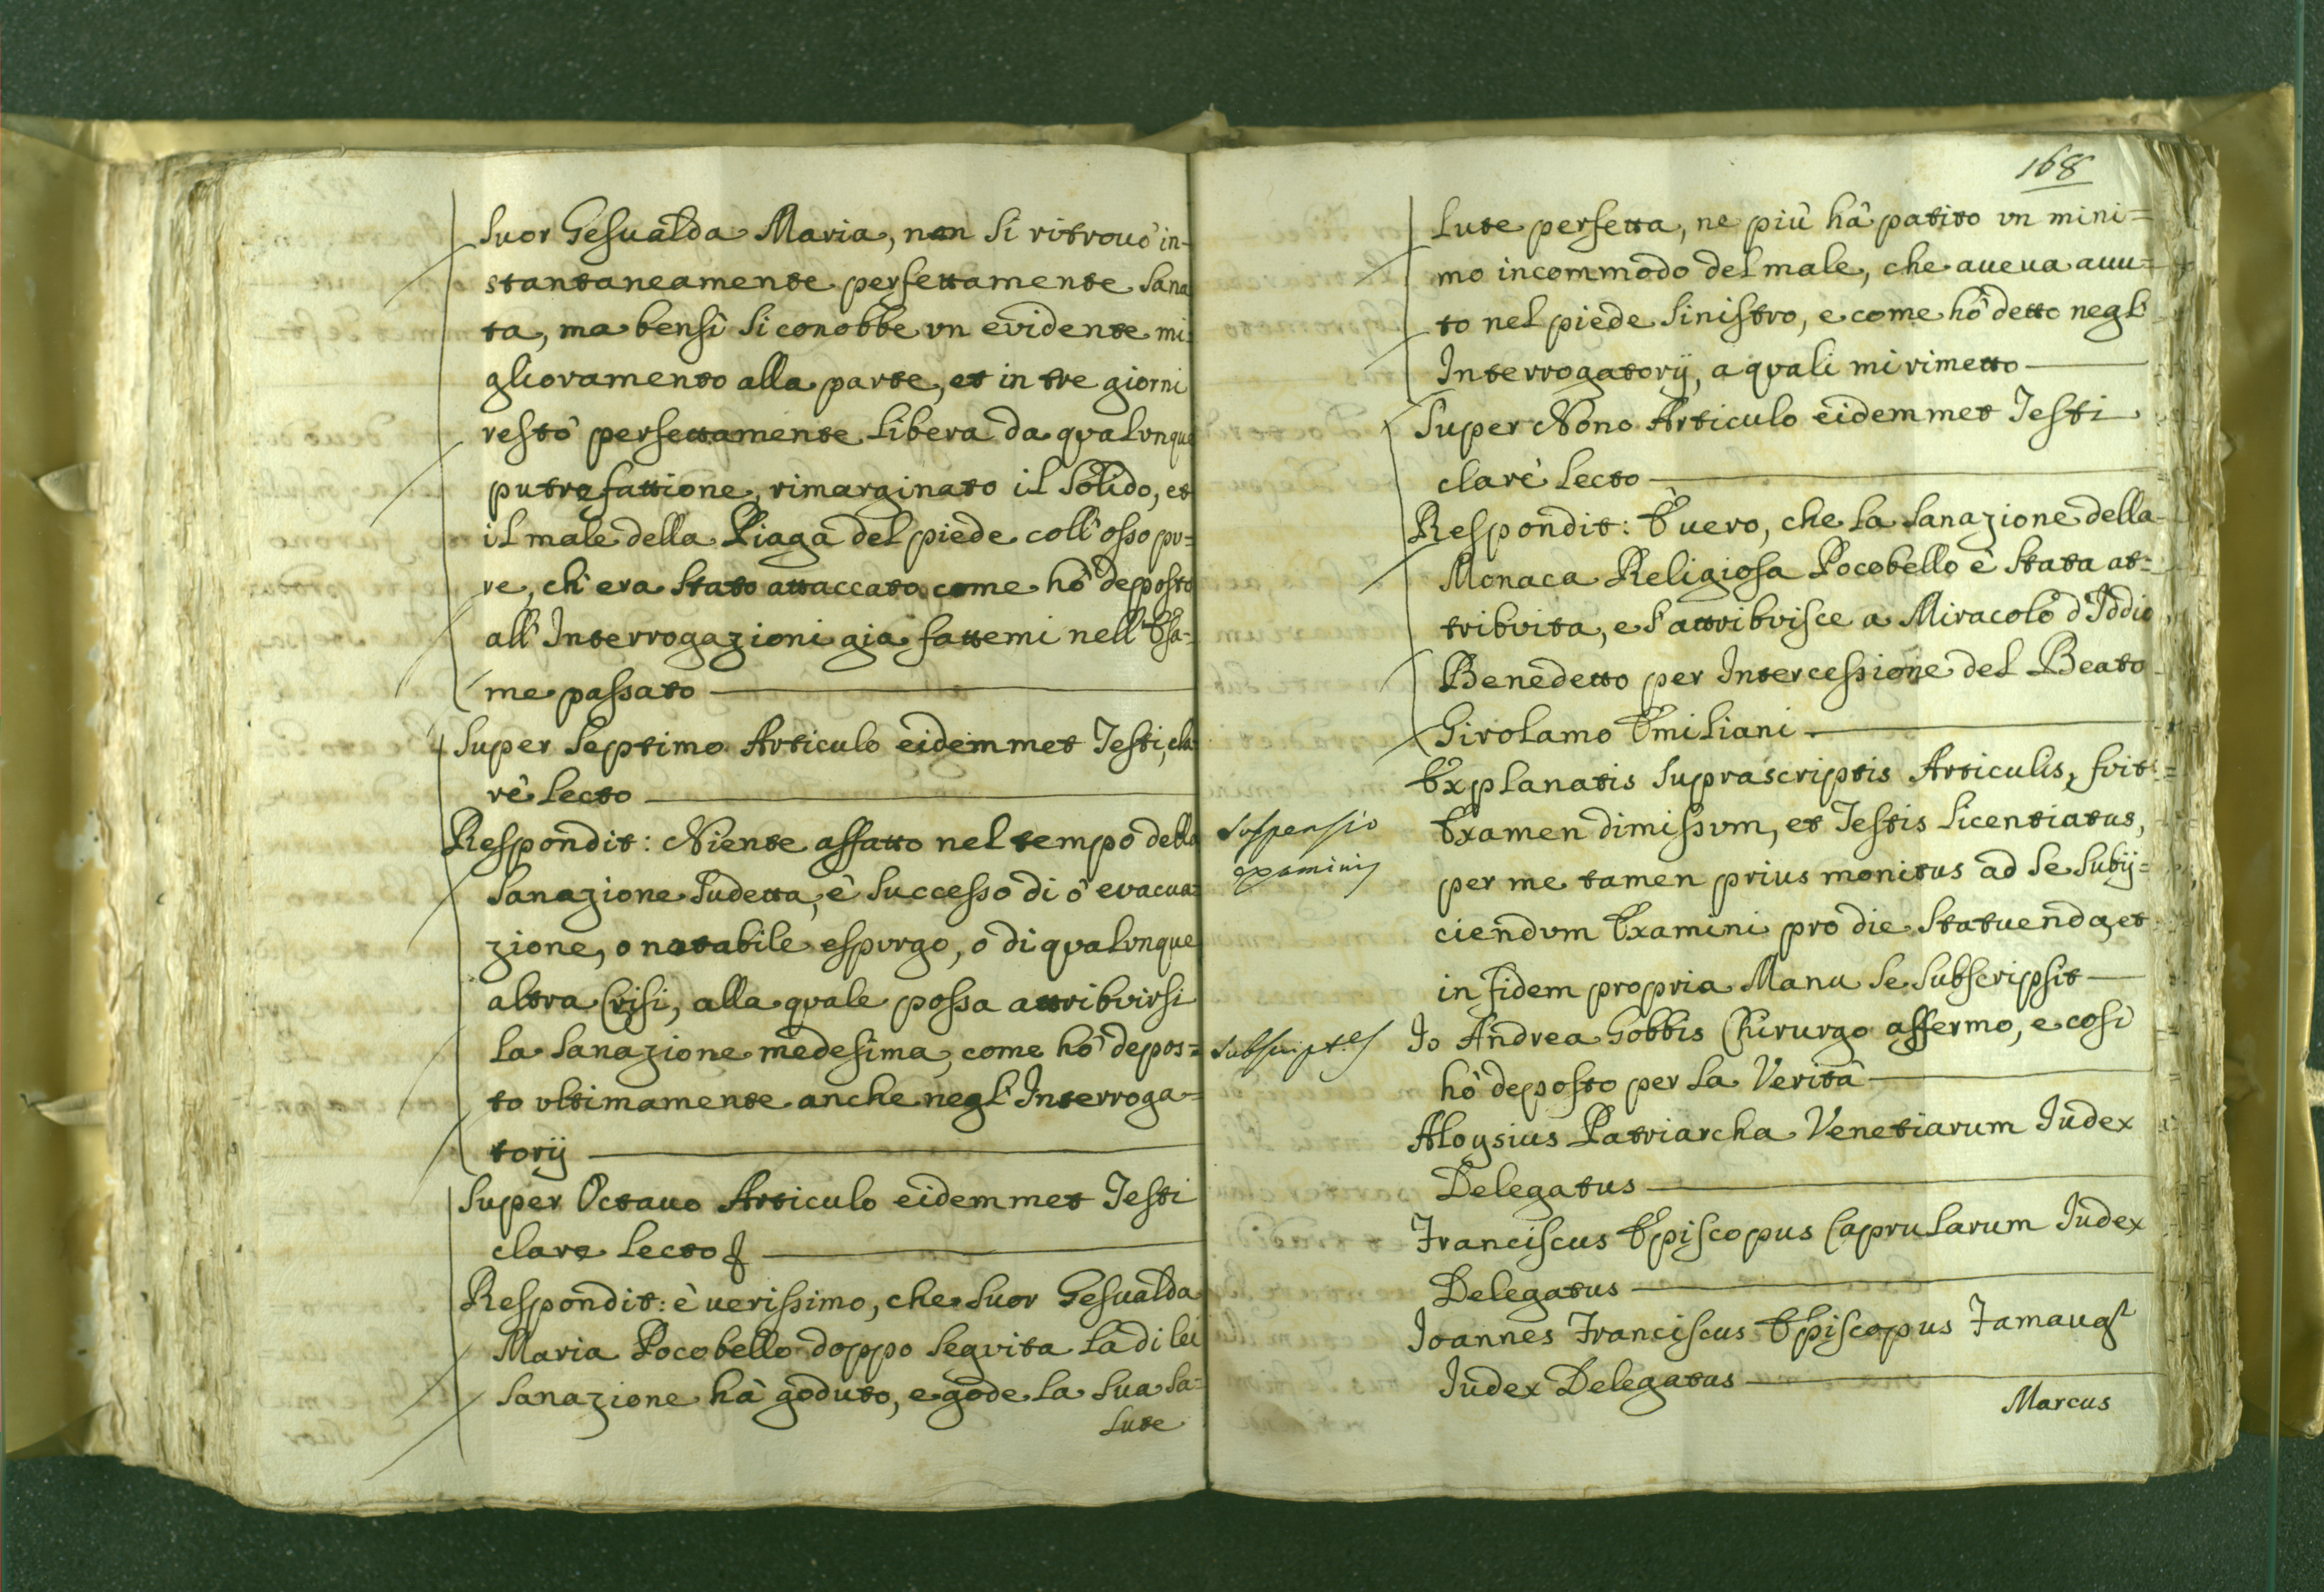 Suor Gesualda Maria, non si ritrouò in-
stantaneamente perfettamente sana
ta, ma bensì si conobbe vn evidente mi-
glioramento alla parte, et in tre giorni
restò perfettamente libera da qualvnque
putrefattione, rimarginato il solido, et
il male della Piaga del piede coll'osso pu=
re, ch'era stato attaccato come hò deposto
all'Interrogazioni gia fattemi nell'Esa-
me passato
Super Septimo Articulo eidemmet Testi, cla-
rè lecto
Respondit: Niente affatto nel tempo della
sanazione sudetta, è successo di ò evacua-
zione, o notabile espurgo, o di qualvnque
altra Crisi, alla quale possa attribuirsi
la sanazione medesima, come hò depos=
to vltimamente anche negl'Interroga-
torij
Super Octauo Articulo eidemmet Testi
clare lecto
Respondit: è uerissimo, che Suor Gesualda
Maria Pocobello doppo seguita la di lei
sanazione hà goduto, e gode la sua sa-
lute
168
lute perfetta, ne più hà patito vn mini=
mo incommodo del male, che aueua auu=
to nel piede sinistro, e come hò detto negl'
Interrogatorij, a quali mi rimetto
Super Nono Articulo eidemmet Testi
clarè lecto
Respondit: È uero, che la sanazione della
Monaca Religiosa Pocobello è stata at=
tribuita, e s'attribuisce a Miracolo d'Iddio
Benedetto per Intercessione del Beato
Girolamo Emiliani
Explanatis suprascriptis Articulis, fuit
suspensio
examinis
Examen dimissum, et Testis licentiatus,
per me tamen prius monitus ad se subij=
ciendum Examini pro die statuenda, et
in fidem propria Manu se subscripsit
Io Andrea Gobbis Chirurgo affermo, e così
hò deposto per la Verità
Aloysius Patriarcha Venetiarum Iudex
Delegatus
Franciscus Episcopus Caprularum Iudex
Delegatus
Ioannes Franciscus Episcopus Famaug
Iudex Delegatus
Marcus